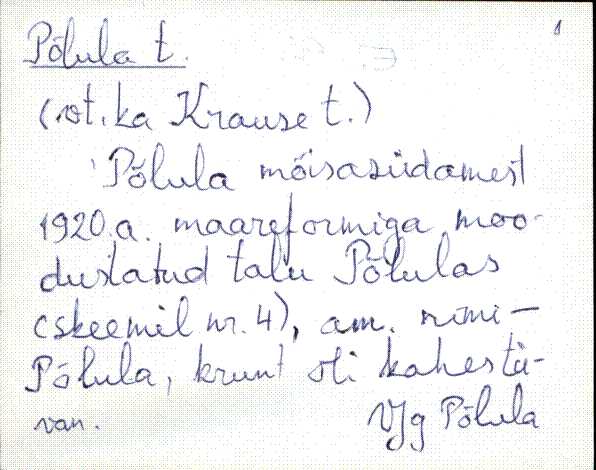 Põlula t.
(vt. ka Krause t.)
Põlula mõisasüdamest
1920.a. maareformiga moo-
dustatud talu Põlulas
(skeemil nr. 4), am. nimi -
Põlula, krunt oli kahestä-
van. VJg Põlula